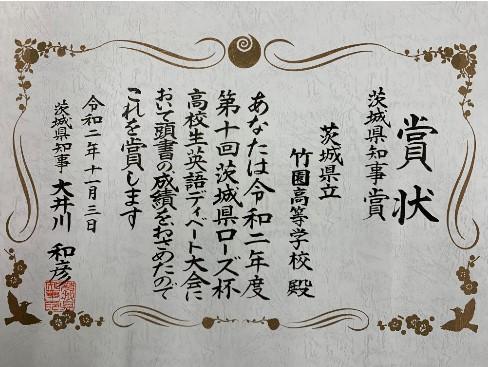 賞状
茨城県知事賞
茨城県立
竹園高等学校 殿
あなたは令和二年度
第十回茨城県ローズ杯
高校生英語ディベート大会に
おいて頭書の成績をおさめたので
これを賞します
令和二年十一月三日
茨城県知事 大井川 和彦